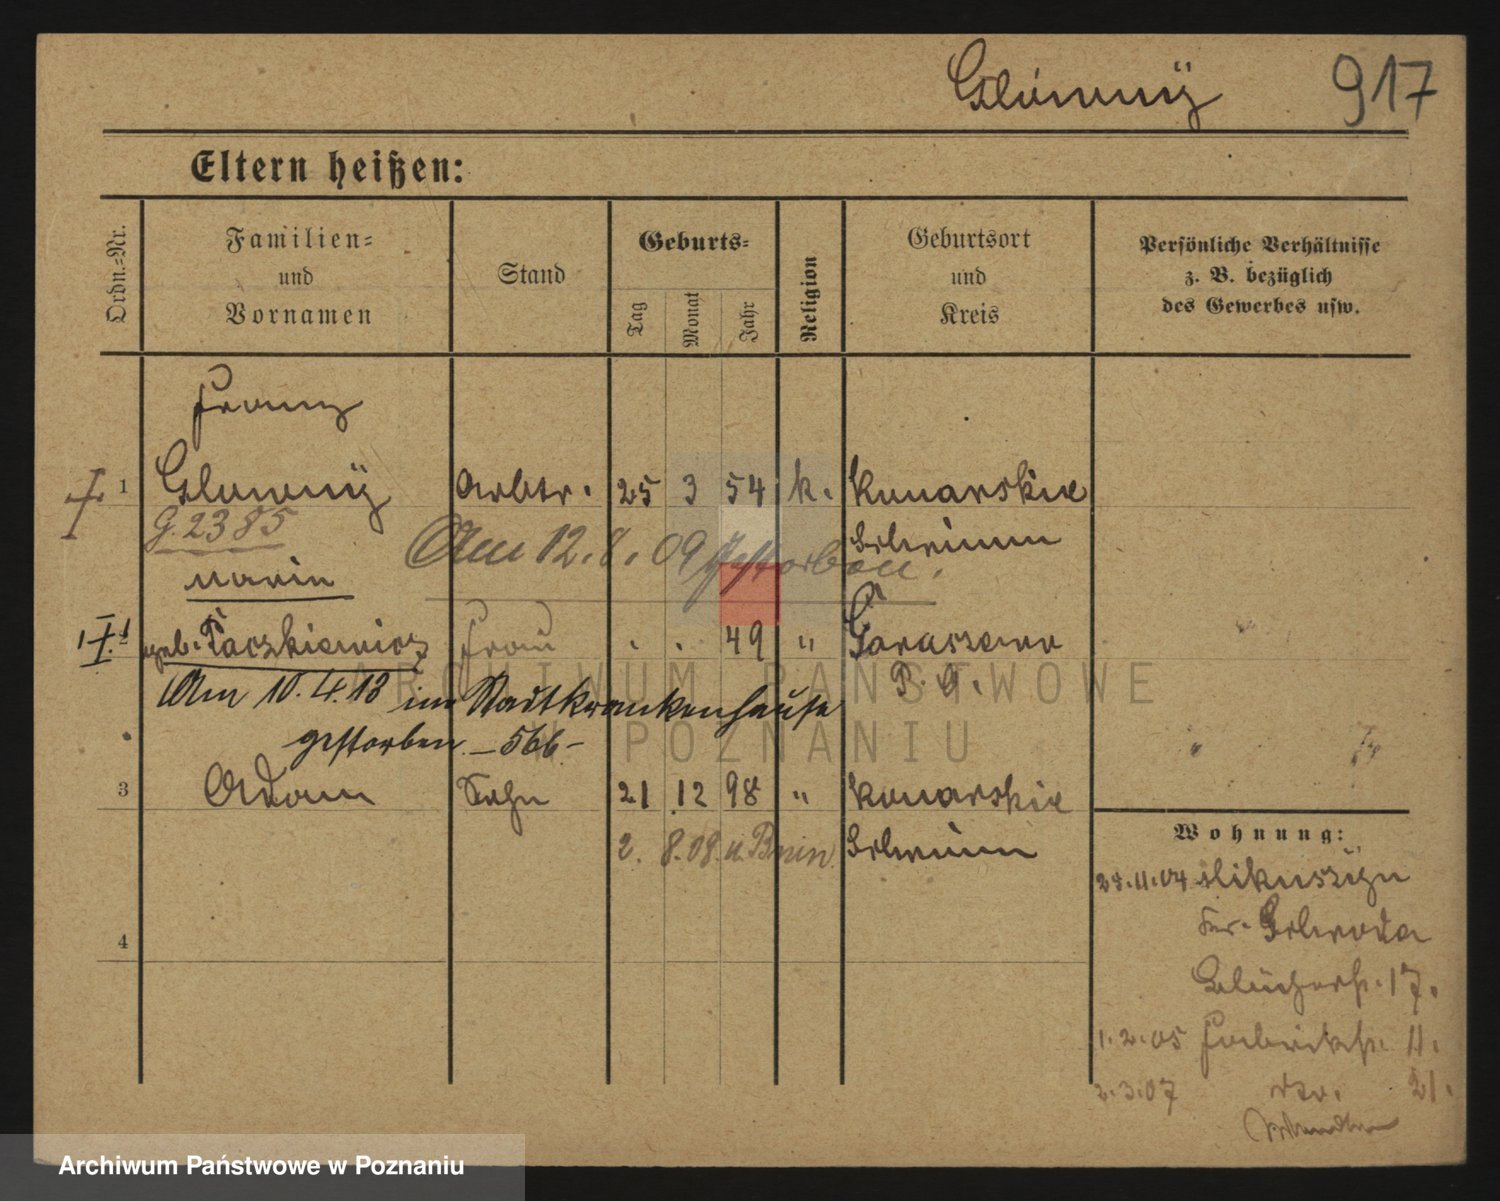 Glowny 917
Eltern heißen:
Ordn.-Nr.
Familien-
und
Vornamen
Stand
Geburts-
Tag
Monat
Jahr
Religion
Geburtsort
und
Kreis
Persönliche Verhältnisse
z. B. bezüglich
des Gewerbes usw.
Franz
1 Arbtr. 25 3 54 k. Konarskie
G. 2385 Schrimm
Am 12. 8. 09 gestorben.
Maria
geb. Taczkiewicz Frau . . 49 " Garaszewo
P. O.
Am 10. 4. 13 im Stadtkrankenhause
gestorben – 566 –
3 Adam Sohn 21 12 98 " Konarskie
2. 8. 08. n. Bnin Schrimm
4
Wohnung:
.11.04
Schroda
Blücherstr. 17.
1.2.05 Fabrikstr. 11.
2.3.07 21.
ARCHIWUM PAŃSTWOWE
W POZNANIU
Archiwum Państwowe w Poznaniu